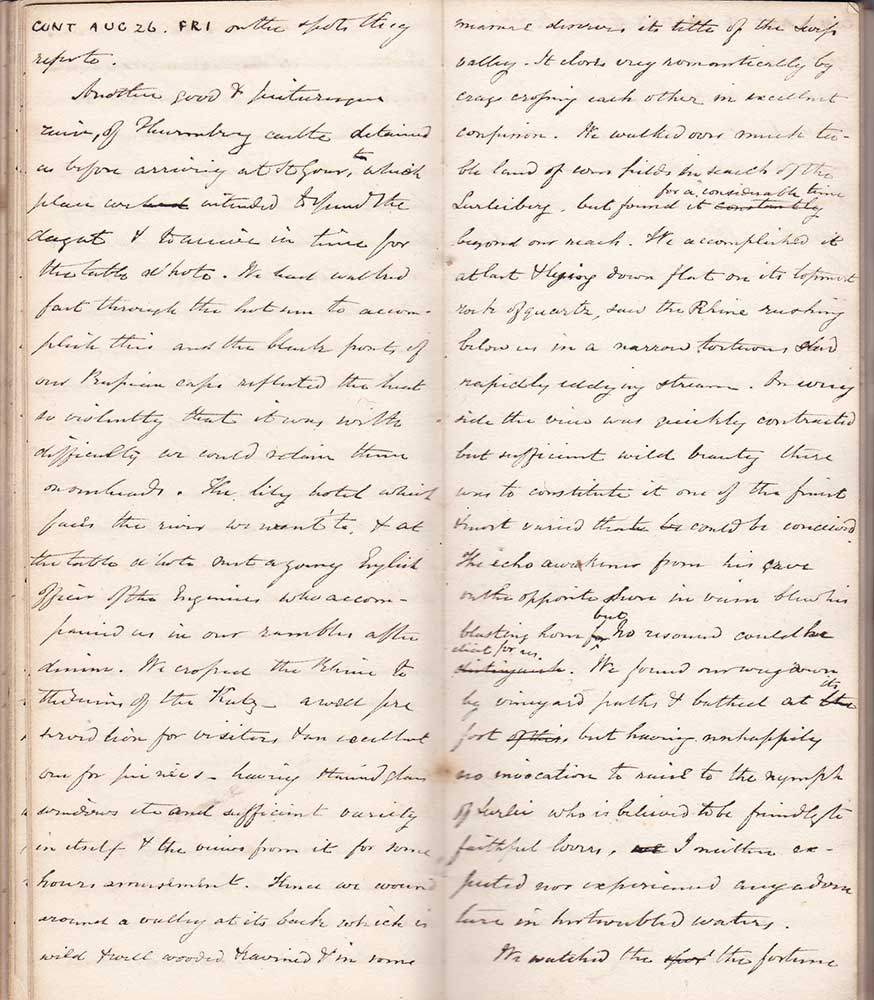 CONT AUG 26. FRI on the spots they
reports.
Another good & picturesque
ruin, of Thurmberg castle detained
us before arriving at St Goar, to which
place we had intended to spend the
day at & to arrive in time for
the table d'hote. We had walked
fast through the hot sun to accom-
plish this and the black points of
our Prussian caps reflected the heat
so violently that it was with
difficulty we could retain them
on our heads. The lily hotel which
faces the river we went to, & at
the table d'hote met a young English
officer of the Engineers who accom-
panied us in our rambles after
dinner. We crossed the Rhine to
the ruins of the Katz - a well pre
served lion for visitors & an excellent
one for picnics - having stained glass
windows etc and sufficient variety
in itself & the views from it for some
hours amusement. Hence we wound
around a valley at its back which is
wild & well wooded & ravined & in some
manner deserves its title of the Swiss
valley. It closes very romantically by
crags crossing each other in excellent
confusion. We walked over much ta-
ble land of corn fields in search of the
for a considerable time
Lurleiberg, but found it constantly
beyond our reach. We accomplished it
at last & lying down flat on its topmost
rock of quartz, saw the Rhine rushing
below us in a narrow tortuous and
rapidly eddying stream. On every
side the view was quickly contracted
but sufficient wild beauty there
was to constitute it one of the finest
& most varied that could be conceived
The echo awakener from his cave
on the opposite shore in vain blew his
but
blasting horn for no resound could he
elicit for us.
distinguish. We found our way down
its
by vineyard paths & bathed at the
foot of this, but having unhappily
no invocation to raise to the nymph
of Lurlei who is believed to be friendly to
faithful lovers, we I neither ex-
pected nor experienced any adven
ture in her troubled waters.
We watched the the fortune